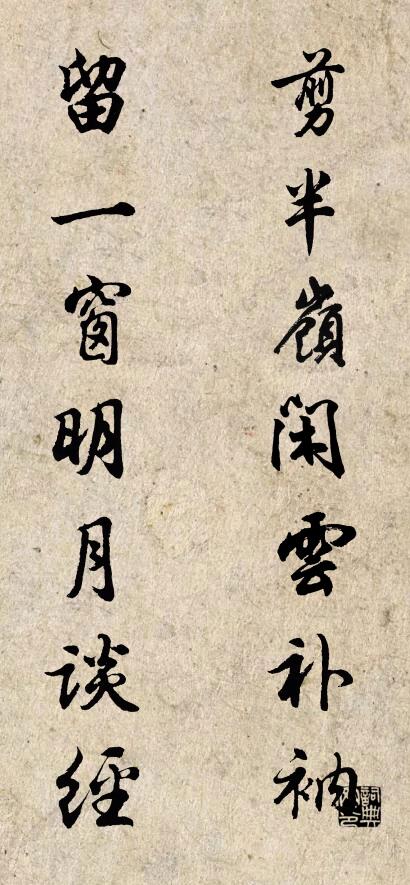 剪半嶺閑雲补衲
留一窗明月談經